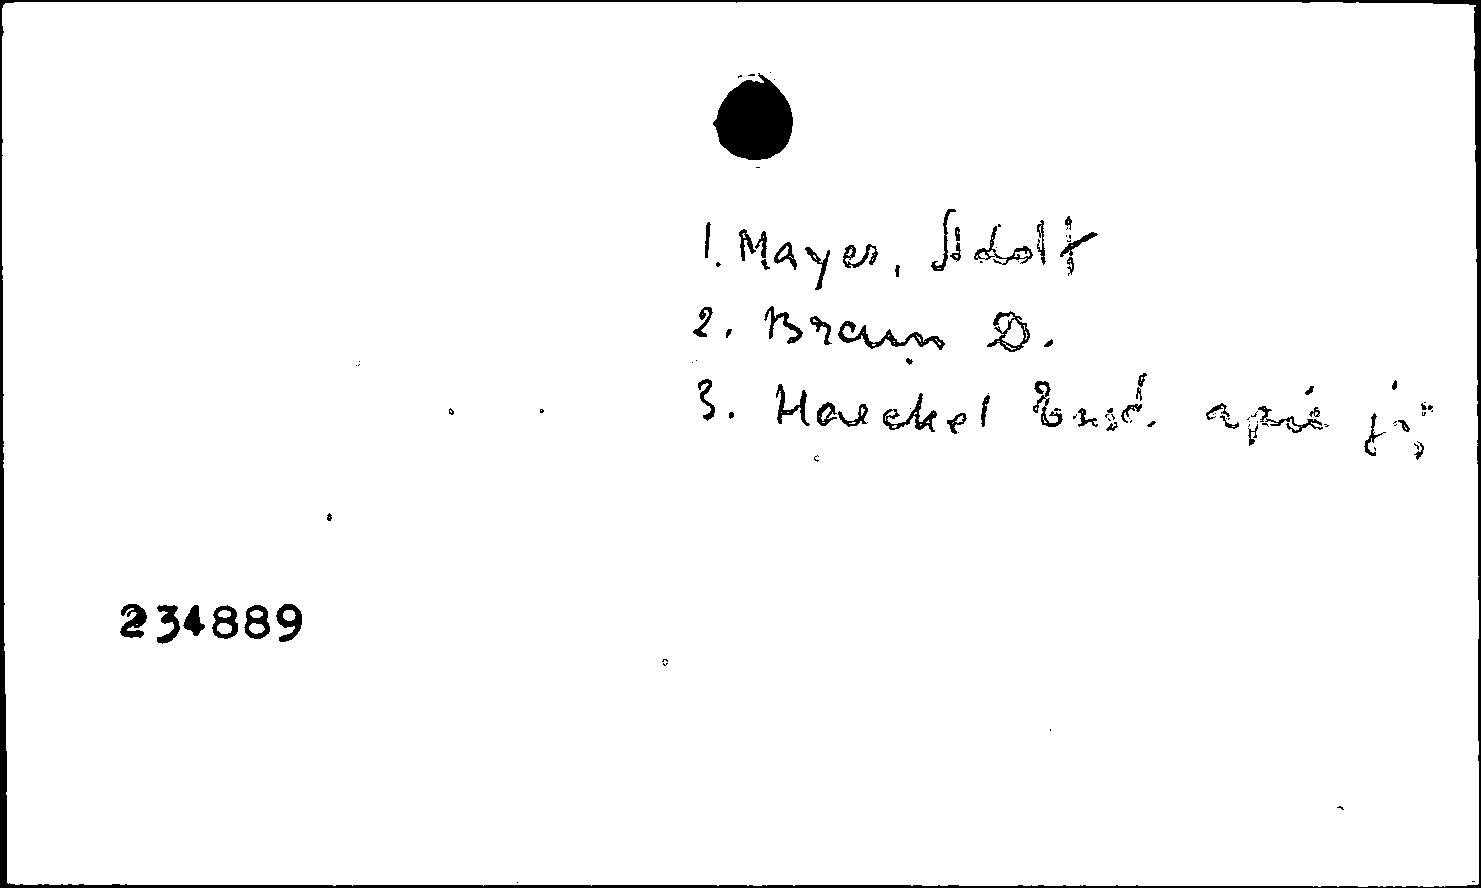 1. Mayer, Adolf
2. Braun D.
3. Haeckel Ernst. apie jį
234889